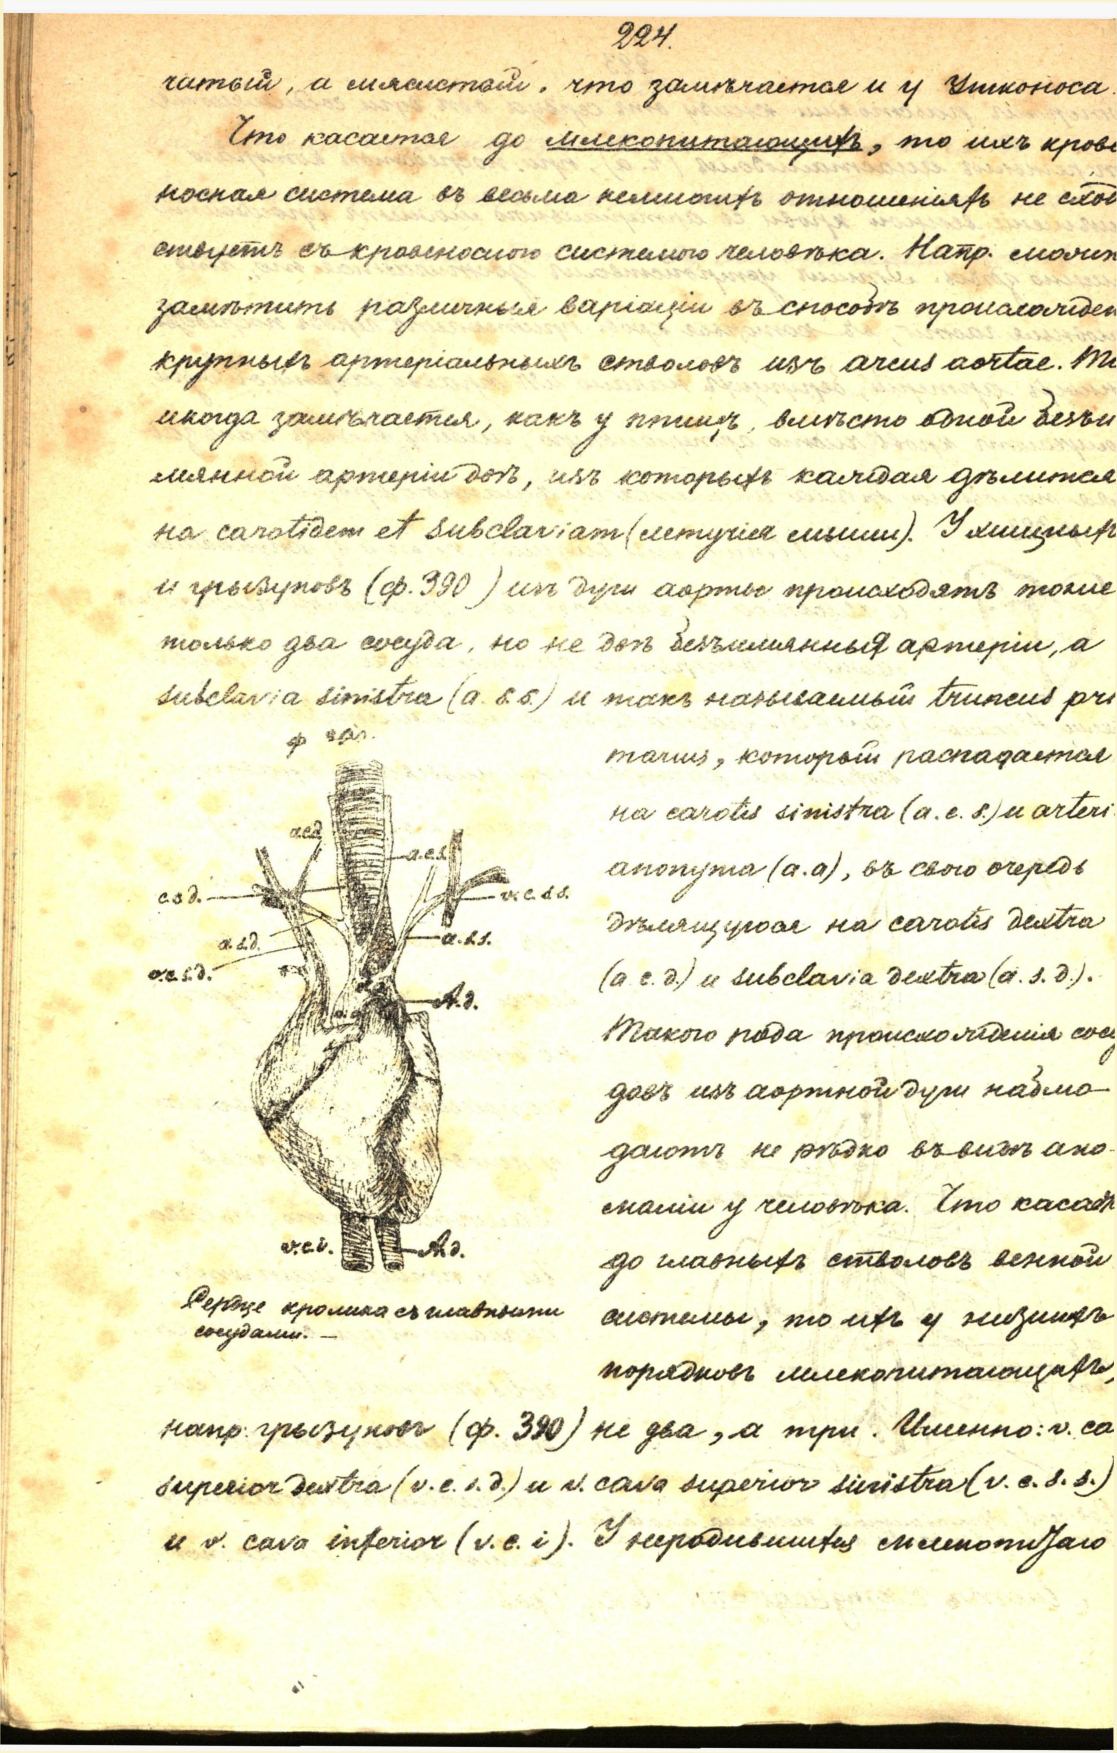 224.
чатый, а мясистый, что замѣчается и у Утконоса.
Что касается до млекопитающихъ, то ихъ крове
носная система въ весьма немногихъ отношеніяхъ не сход
ствуетъ съ кровеносною системою человѣка. Напр. можн
замѣтить различныя варіаціи въ способѣ происхожден
крупныхъ артеріальныхъ стволовъ изъ arcus aortae.
иногда замѣчается, какъ у птицъ, вмѣсто одной безъи
мянной артеріи двѣ, изъ которыхъ каждая дѣлится
на carotidem et subclaviam (летучія мыши). У хищныхъ
и грызуновъ (ф. 390) изъ дуги аорты происходятъ тоже
только два сосуда, но не двѣ безъимянныя артеріи, а
subclavia sinistra (a. s.s.) и такъ называемый truncus pri
marius, который распадается
на carotis sinistra (a. c. s.) и arteri
anonyma (a.a), въ свою очередь
дѣлящуюся на carotis dextra
(a. c. d.) и subclavia dextra (a. s. d.).
Такого рода происхожденія сосу
довъ изъ аортной дуги наблю-
даютъ не рѣдко въ видѣ ано-
маліи у человѣка. Что касает
до главныхъ стволовъ венной
системы, то ихъ у низшихъ
порядковъ млекопитающихъ,
ф
a.c.d.
a.c.s.
c.s.d.
v.c.s.s.
a.s.d.
a.s.s.
v.c.s.d.
A.d.
a.a
v.c.i.
A.d.
Сердце кролика съ главными
сосудами. —
напр. грызуновъ (ф. 390) не два, а три. Именно: v. ca
superior dextra (v. c. s. d.) и v. cava superior sinistra (v. c. s. s.)
и v. cava inferior (v. c. i). У неродившихся